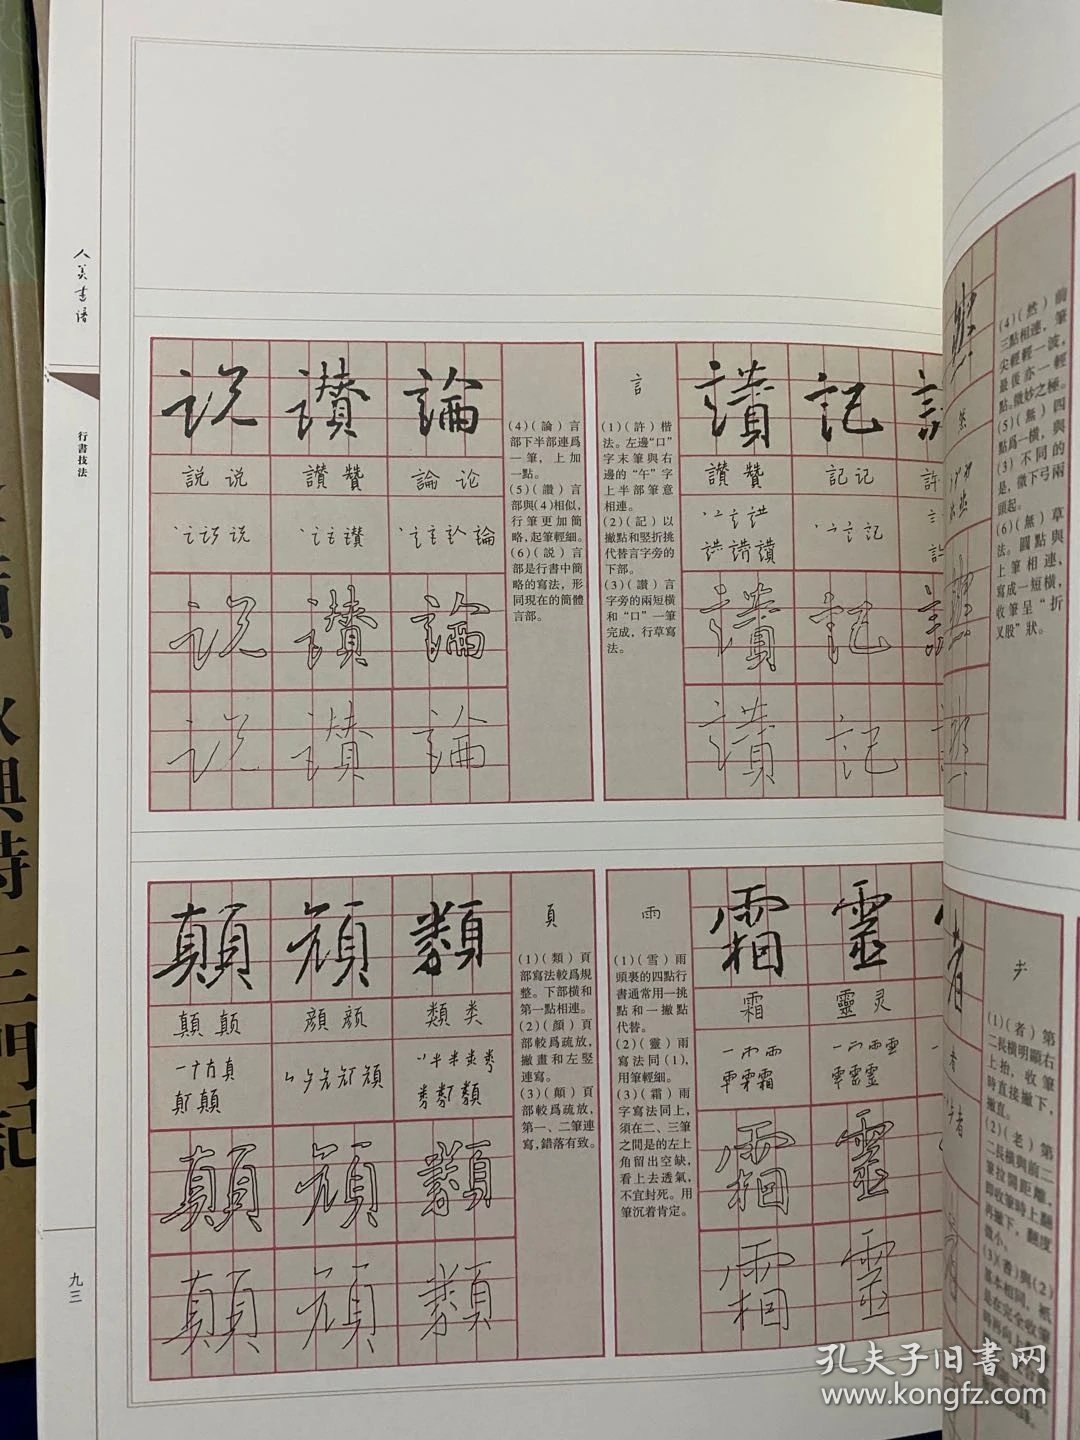 人美書譜
行書技法
九三
言
(1)(許)楷
法。左邊“口”
字末筆與右
邊的“午”字
上半部筆意
相連。
(2)(記)以
撇點和竪折挑
代替言字旁的
下部。
(3)(讚)言
字旁的兩短橫
和“口”一筆
完成，行草寫
法。
許
記
記记
讚
讚赞
(4)(論)言
部下半部連爲
一筆，上加
一點。
(5)(讚)言
部與(4)相似，
行筆更加簡
略，起筆輕細。
(6)(説)言
部是行書中簡
略的寫法，形
同現在的簡體
言部。
論
論论
讚
讚贊
说
説说
雨
(1)(雪)雨
頭裏的四點行
書通常用一挑
點和一撇點
代替。
(2)(靈)雨
寫法同(1)，
用筆輕細。
(3)(霜)雨
字寫法同上，
須在二、三筆
之間是的左上
角留出空缺，
看上去透氣，
不宜封死。用
筆沉着肯定。
靈
靈灵
霜
霜
頁
(1)(類)頁
部寫法較爲規
整。下部橫和
第一點相連。
(2)(顔)頁
部較爲疏放，
撇畫和左竪
連寫。
(3)(顛)頁
部較爲疏放，
第一、二筆連
寫，錯落有致。
類
類类
顔
顔颜
顛
顛颠
(4)(然)前
三點相連，筆
尖輕輕一波，
最後亦一輕
點。微妙之極。
(5)(無)四
點爲一橫，與
(3)不同的
是，微下弓兩
頭起。
(6)(無)草
法。圓點與
上筆相連，
寫成一短橫，
收筆呈“折
叉股”狀。
然
耂
(1)(者)第
二長橫明顯右
上抬，收筆
時直接撇下，
撇直。
(2)(老)第
二長橫與前二
筆拉開距離，
即收筆時上翻
再撇下，翻度
微小。
者
孔夫子旧書网
www.kongfz.com